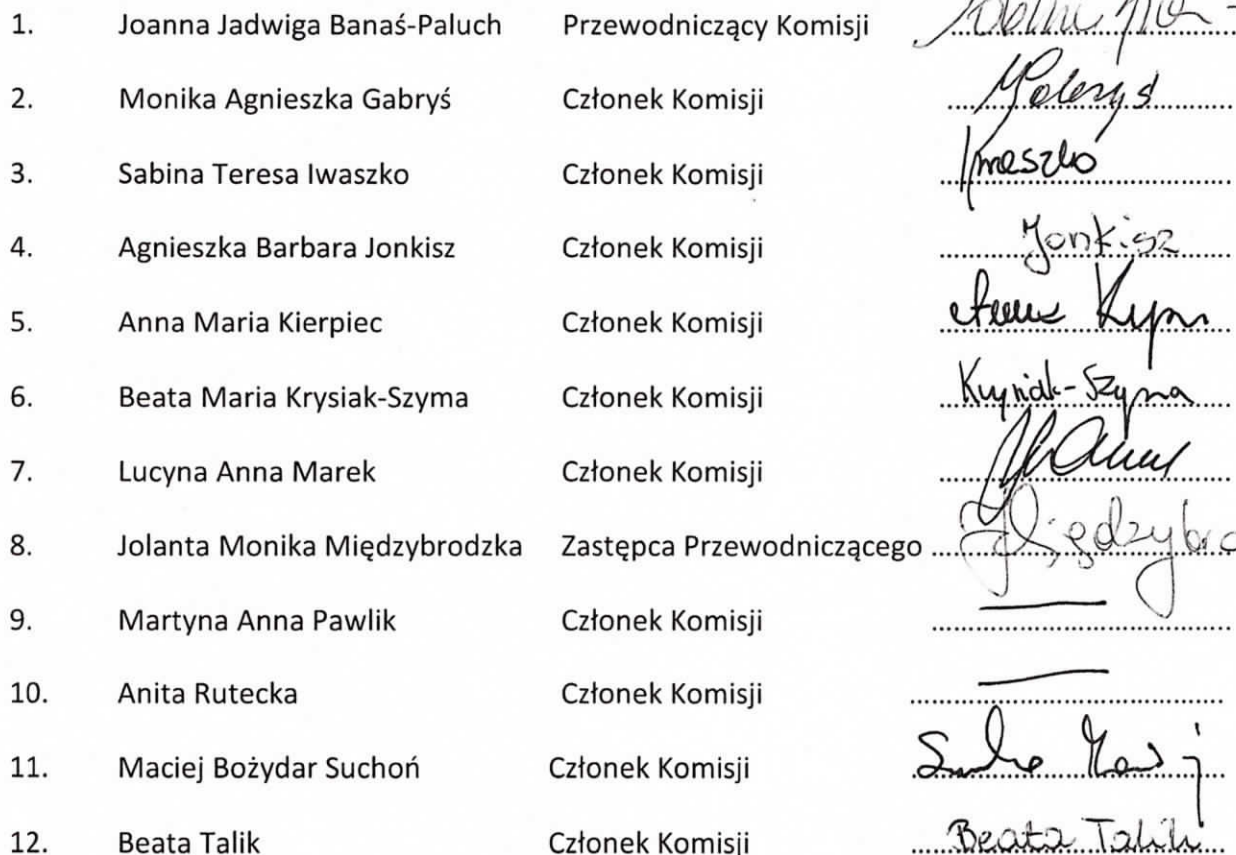 1. Joanna Jadwiga Banaś-Paluch Przewodniczący Komisji
2. Monika Agnieszka Gabryś Członek Komisji
3. Sabina Teresa Iwaszko Członek Komisji
4. Agnieszka Barbara Jonkisz Członek Komisji Jonkisz
5. Anna Maria Kierpiec Członek Komisji
6. Beata Maria Krysiak-Szyma Członek Komisji Krysiak-Szyma
7. Lucyna Anna Marek Członek Komisji
8. Jolanta Monika Międzybrodzka Zastępca Przewodniczącego
9. Martyna Anna Pawlik Członek Komisji
10. Anita Rutecka Członek Komisji
11. Maciej Bożydar Suchoń Członek Komisji
12. Beata Talik Członek Komisji Beata Talik